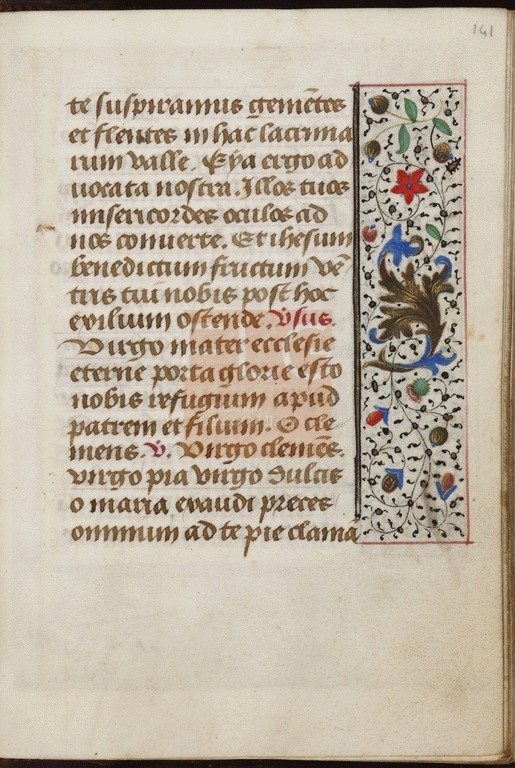 141
te suspiramus gemētes
et flentes in hac lacrima
rum valle. Eya ergo ad
uocata nostra. Illos tuos
misericordes oculos ad
nos conuerte. Et ihesum
benedictum fructum vē
tris tui nobis post hoc
exilium ostende. v̄sus.
Virgo mater ecclesie
eterne porta glorie esto
nobis refugium apud
patrem et filium. O cle
mens. v̄. Virgo clemēs.
virgo pia virgo dulcis
o maria exaudi preces
omnium ad te pie clamā